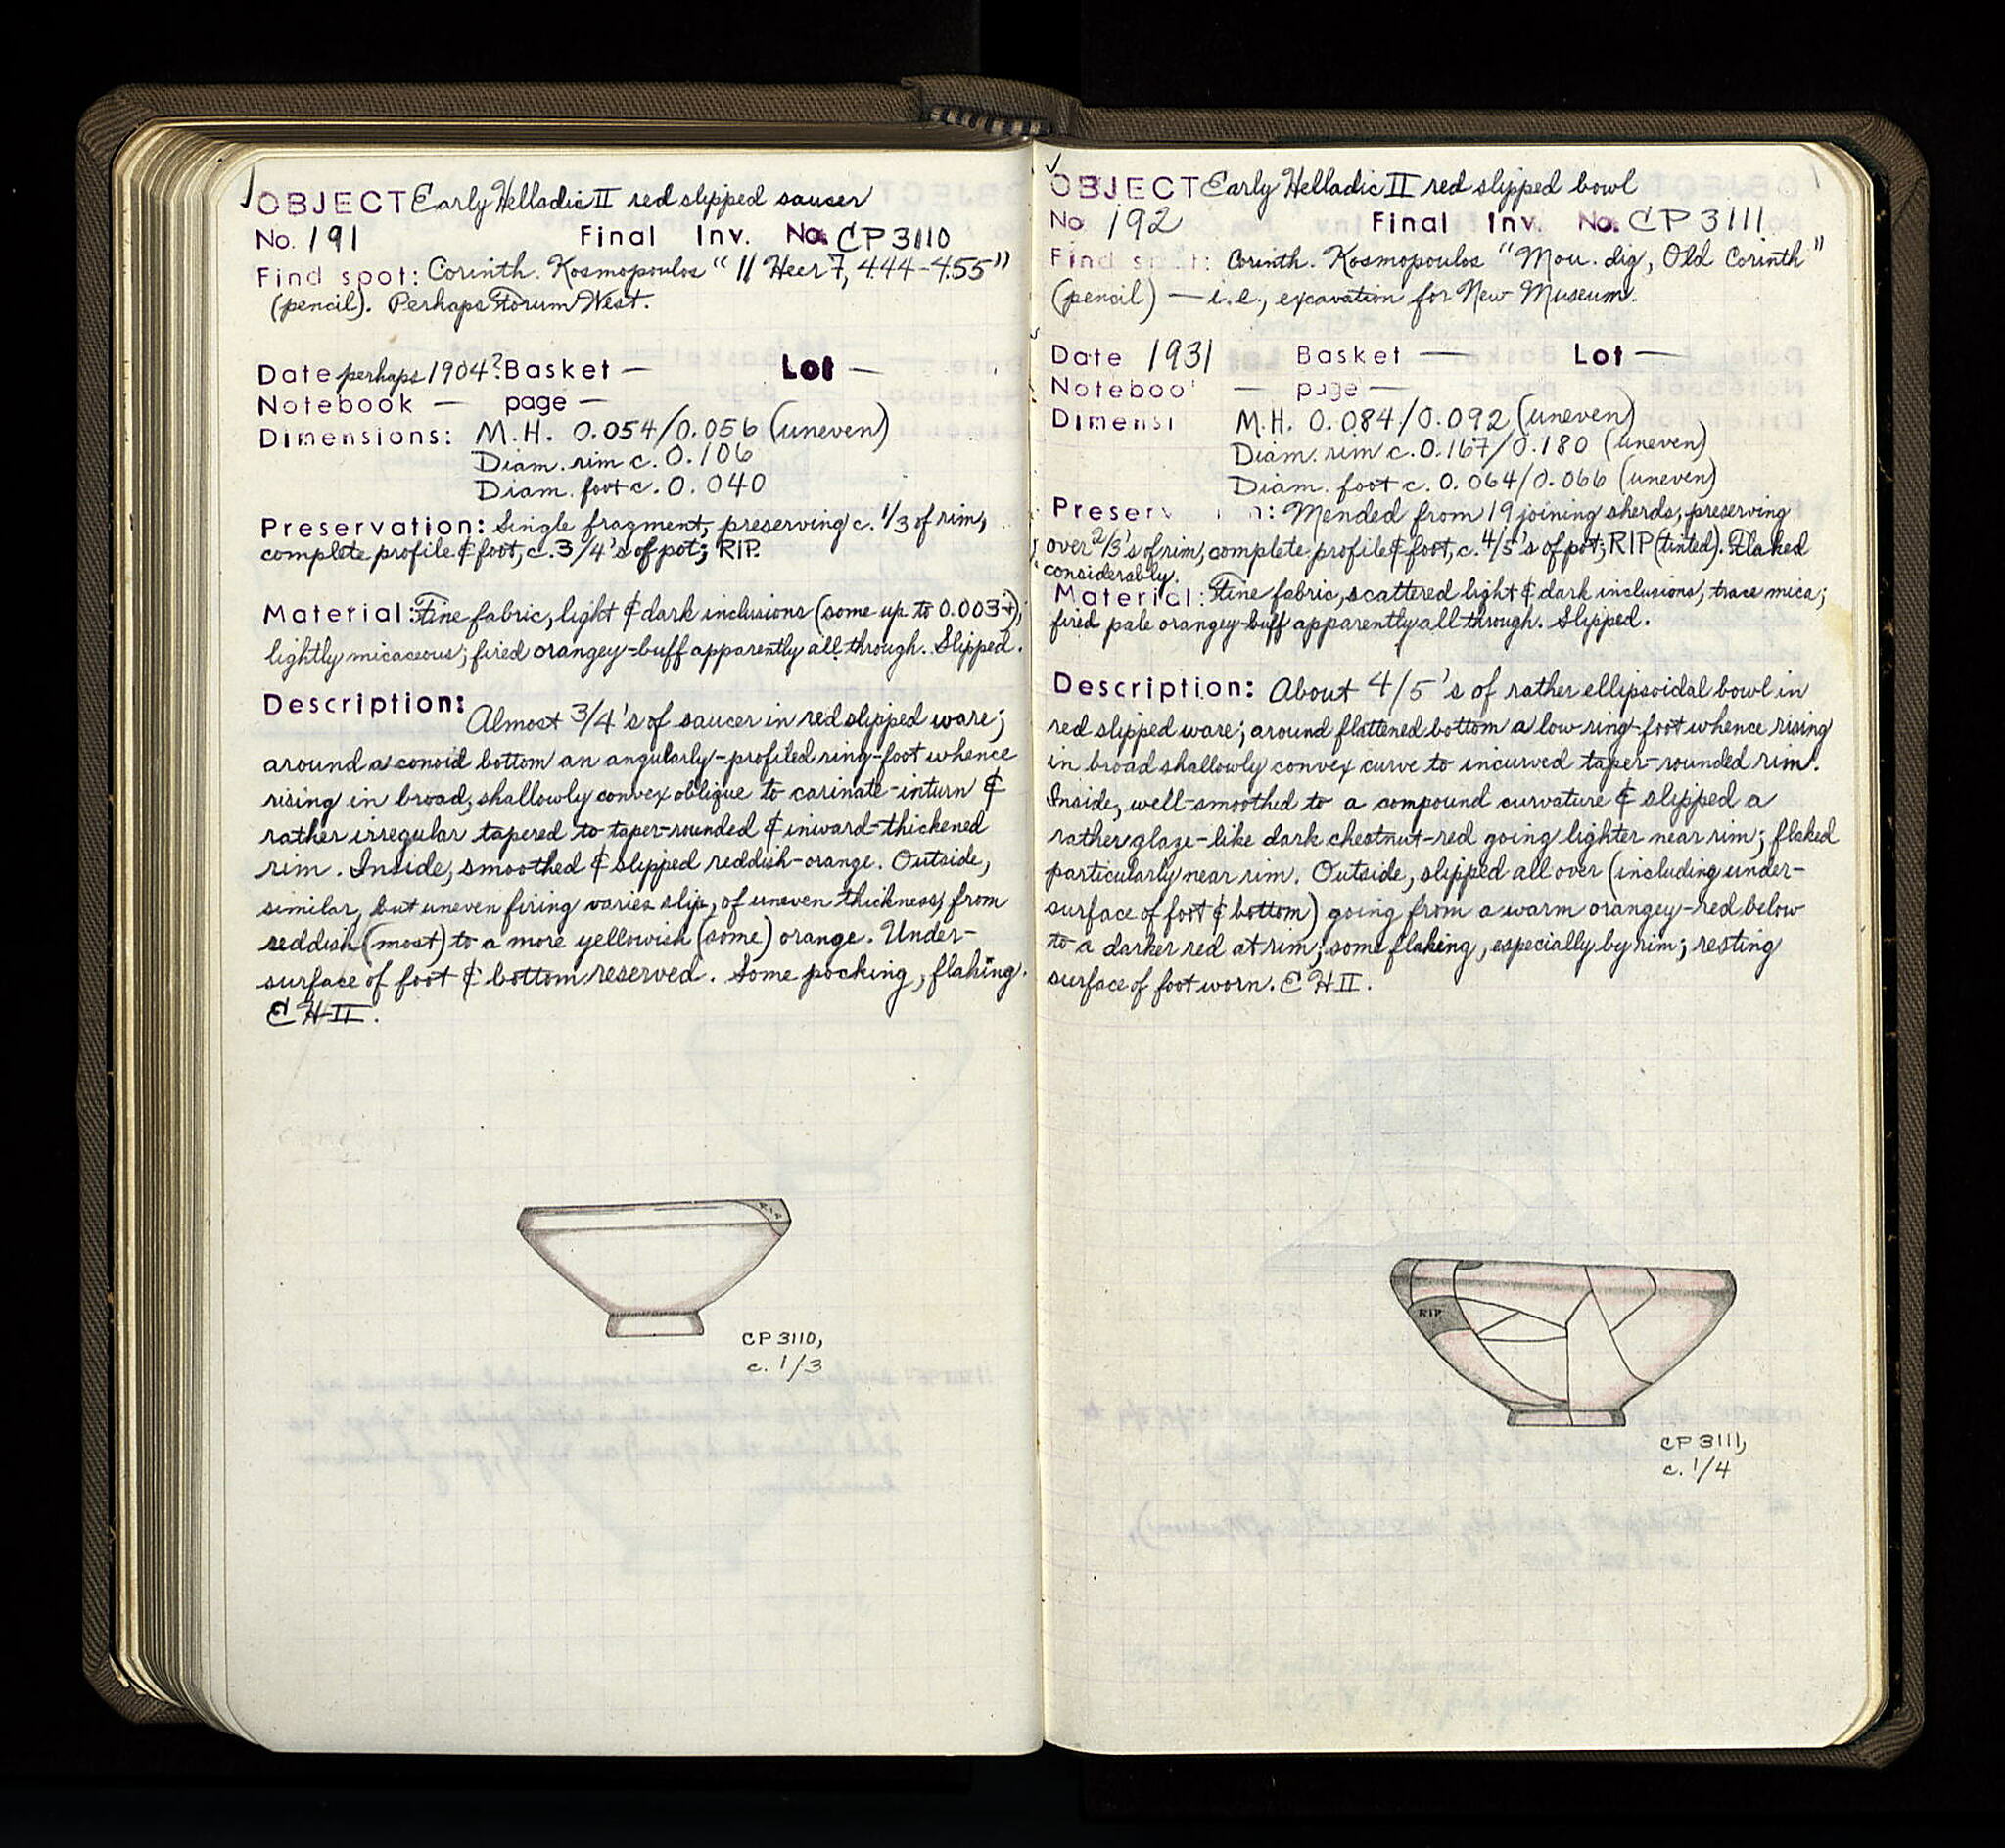 OBJECT Early Helladic II red slipped saucer
No. 191 Final Inv. No. CP 3110
Find spot: Corinth. Kosmopoulos "11 Heer 7, 444-455"
(pencil). Perhaps Forum West.
Date perhaps 1904? Basket — Lot —
Notebook — page —
Dimensions: M.H. 0.054/0.056 (uneven)
Diam. rim c. 0.106
Diam. foot c. 0.040
Preservation: Single fragment, preserving c. 1/3 of rim,
complete profile & foot, c. 3/4's of pot; RIP.
Material: Fine fabric, light & dark inclusions (some up to 0.003+);
lightly micaceous; fired orangey-buff apparently all through. Slipped.
Description: Almost 3/4's of saucer in red slipped ware;
around a conoid bottom an angularly-profiled ring-foot whence
rising in broad, shallowly convex oblique to carinate-inturn &
rather irregular tapered to taper-rounded & inward-thickened
rim. Inside, smoothed & slipped reddish-orange. Outside,
similar, but uneven firing varies slip, of uneven thickness, from
reddish (most) to a more yellowish (some) orange. Under-
surface of foot & bottom reserved. Some pocking, flaking.
EH II.
RIP
CP 3110,
c. 1/3
OBJECT Early Helladic II red slipped bowl
No 192 Final Inv. No. CP 3111
Find spot: Corinth. Kosmopoulos "Mou. dig, Old Corinth"
(pencil) — i.e., excavation for New Museum.
Date 1931 Basket — Lot —
Noteboo — page —
Dimensi M.H. 0.084/0.092 (uneven)
Diam. rim c. 0.167/0.180 (uneven)
Diam. foot c. 0.064/0.066 (uneven)
Preserv n: Mended from 19 joining sherds, preserving
over 2/3's of rim, complete profile & foot, c. 4/5's of pot; RIP (tinted). Flaked
considerably.
Material: Fine fabric, scattered light & dark inclusions, trace mica;
fired pale orangey-buff apparently all through. Slipped.
Description: About 4/5's of rather ellipsoidal bowl in
red slipped ware; around flattened bottom a low ring-foot whence rising
in broad shallowly convex curve to incurved taper-rounded rim.
Inside, well-smoothed to a compound curvature & slipped a
rather glaze-like dark chestnut-red going lighter near rim; flaked
particularly near rim. Outside, slipped all over (including under-
surface of foot & bottom) going from a warm orangey-red below
to a darker red at rim; some flaking, especially by rim; resting
surface of foot worn. EH II.
RIP
CP 3111,
c. 1/4